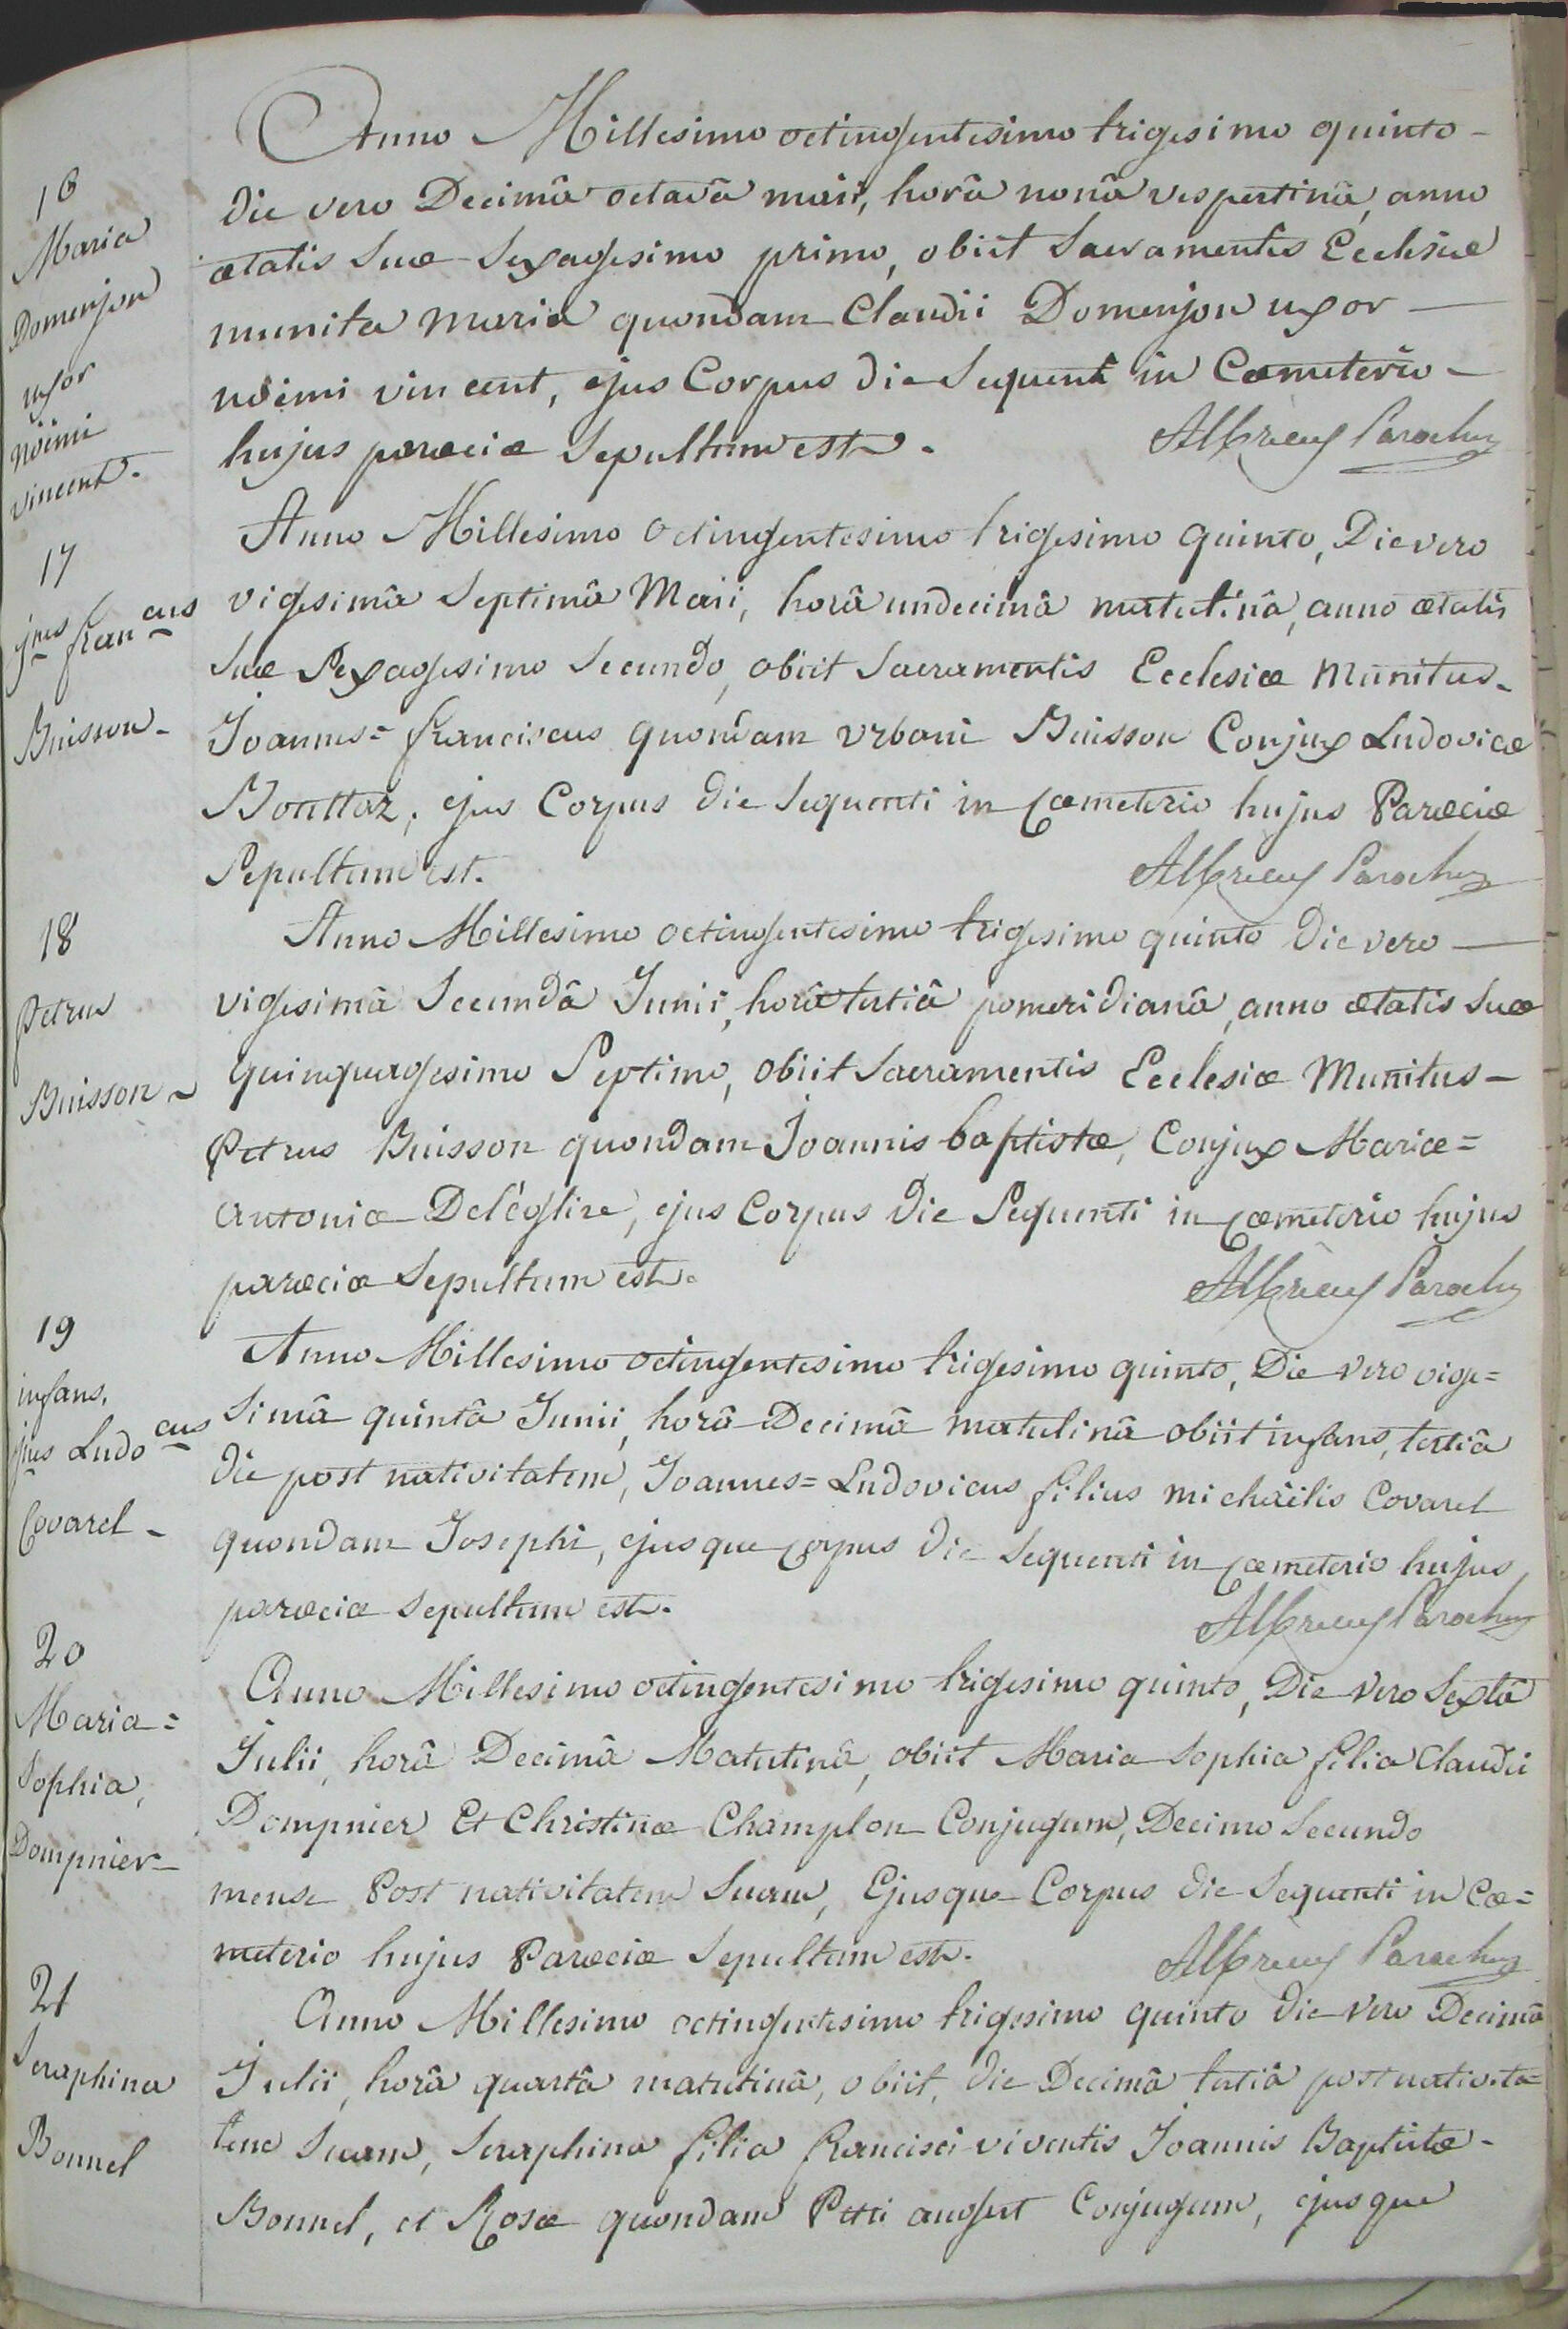 16
Maria
Domenjon
uxor
nöimi
vincent.
Anno Millesimo octingentesimo trigesimo quinto -
die vero Decimâ octavâ maii, horâ nonâ vespertinâ, anno
ætatis Suæ Sexagesimo primo, obiit Sacramentis Ecclesiæ
munita maria quondam Claudii Domenjon uxor —
nöimi vincent, ejus Corpus die Sequenti in Cœmeterio -
hujus parœciæ Sepultum est. Parochus
17
jnes francus
Buisson -
Anno Millesimo Octingentesimo trigesimo quinto, Die vero
vigesimâ Septimâ Maii, horâ undecimâ matutinâ, anno ætatis
Suæ Sexagesimo Secundo, obiit Sacramentis Ecclesiæ Munitus -
Joannes= franciscus quondam Urbani Buisson Conjux Ludovicæ
Bouttaz, ejus Corpus die Sequenti in Cœmeterio hujus Parœciæ
Sepultum est. Parochus
18
Petrus
Buisson -
Anno Millesimo octingentesimo trigesimo quinto die vero —
vigesimâ Secundâ Junii, horâ tertiâ pomeridianâ, anno ætatis Suæ
quinquagesimo Septimo, obiit Sacramentis Ecclesiæ Munitus -
Petrus Buisson quondam Joannis baptistæ, Conjux Mariæ=
antoniæ Deléglise, ejus Corpus die Sequenti in Cœmeterio hujus
parœciæ Sepultum est. Parochus
19
infans.
jnes Ludocus
Covarel -
Anno Millesimo octingentesimo trigesimo quinto, Die vero vige=
simâ quintâ Junii, horâ Decimâ matutinâ obiit infans, tertiâ
die post nativitatem, Joannes= Ludovicus filius michäelis Covarel
quondam Josephi, ejusque Corpus die Sequenti in Cœmeterio hujus
parœciæ Sepultum est. Parochus
20
Maria=
Sophia,
Dompnier -
Anno Millesimo octingentesimo trigesimo quinto, Die vero Sextâ
Julii, horâ Decimâ Matutinâ, obiit Maria Sophia filia Claudii
Dompnier Et Christinæ Champlon Conjugum, Decimo Secundo
mense Post nativitatem Suam, Ejusque Corpus die Sequenti in Cœ=
meterio hujus Parœciæ Sepultum est. Parochus
21
Seraphina
Bonnel
Anno Millesimo octingentesimo trigesimo quinto die vero Decimâ
Julii, horâ quartâ matutinâ, obiit, die Decimâ tertiâ post nativita=
tem Suam, Seraphina filia francisci viventis Joannis Baptistæ -
Bonnel, et Rosæ quondam Petri augert Conjugum, ejusque